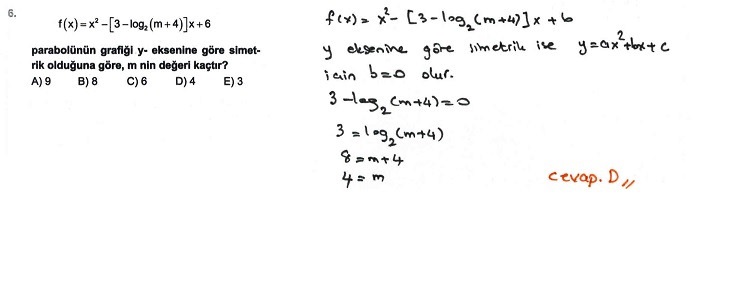 6.
f(x) = x² – [3 – log₂(m + 4)]x + 6
parabolünün grafiği y- eksenine göre simet-
rik olduğuna göre, m nin değeri kaçtır?
A) 9 B) 8 C) 6 D) 4 E) 3
f(x) = x² - [3 - log₂(m+4)]x + 6
y eksenine göre simetrik ise y=ax²+bx+c
için b=0 olur.
3 - log₂(m+4)=0
3 = log₂(m+4)
8 = m+4
4 = m
cevap. D //